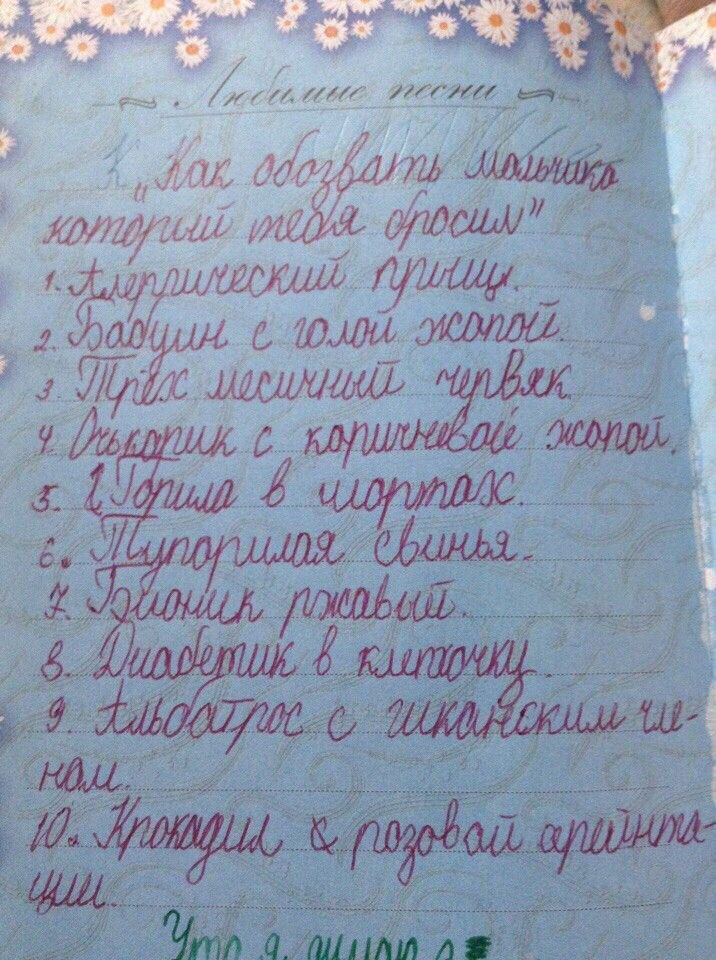 Любимые песни
К „Как обозвать мальчика
который тебя бросил"
1. Алеррический прыщ.
2. Бабуин с голой жопой.
3. Трёх месичный червяк.
4. Очькорик с коричневой жопой.
5. Горила в шортах.
6. Тупорилая свинья.
7. Бионик ржавый.
8. Диабетик в клеточку.
9. Альбатрос с гиканским чле-
ном.
10. Крокадил & розовой ореинта-
ции.
Что я думаю о